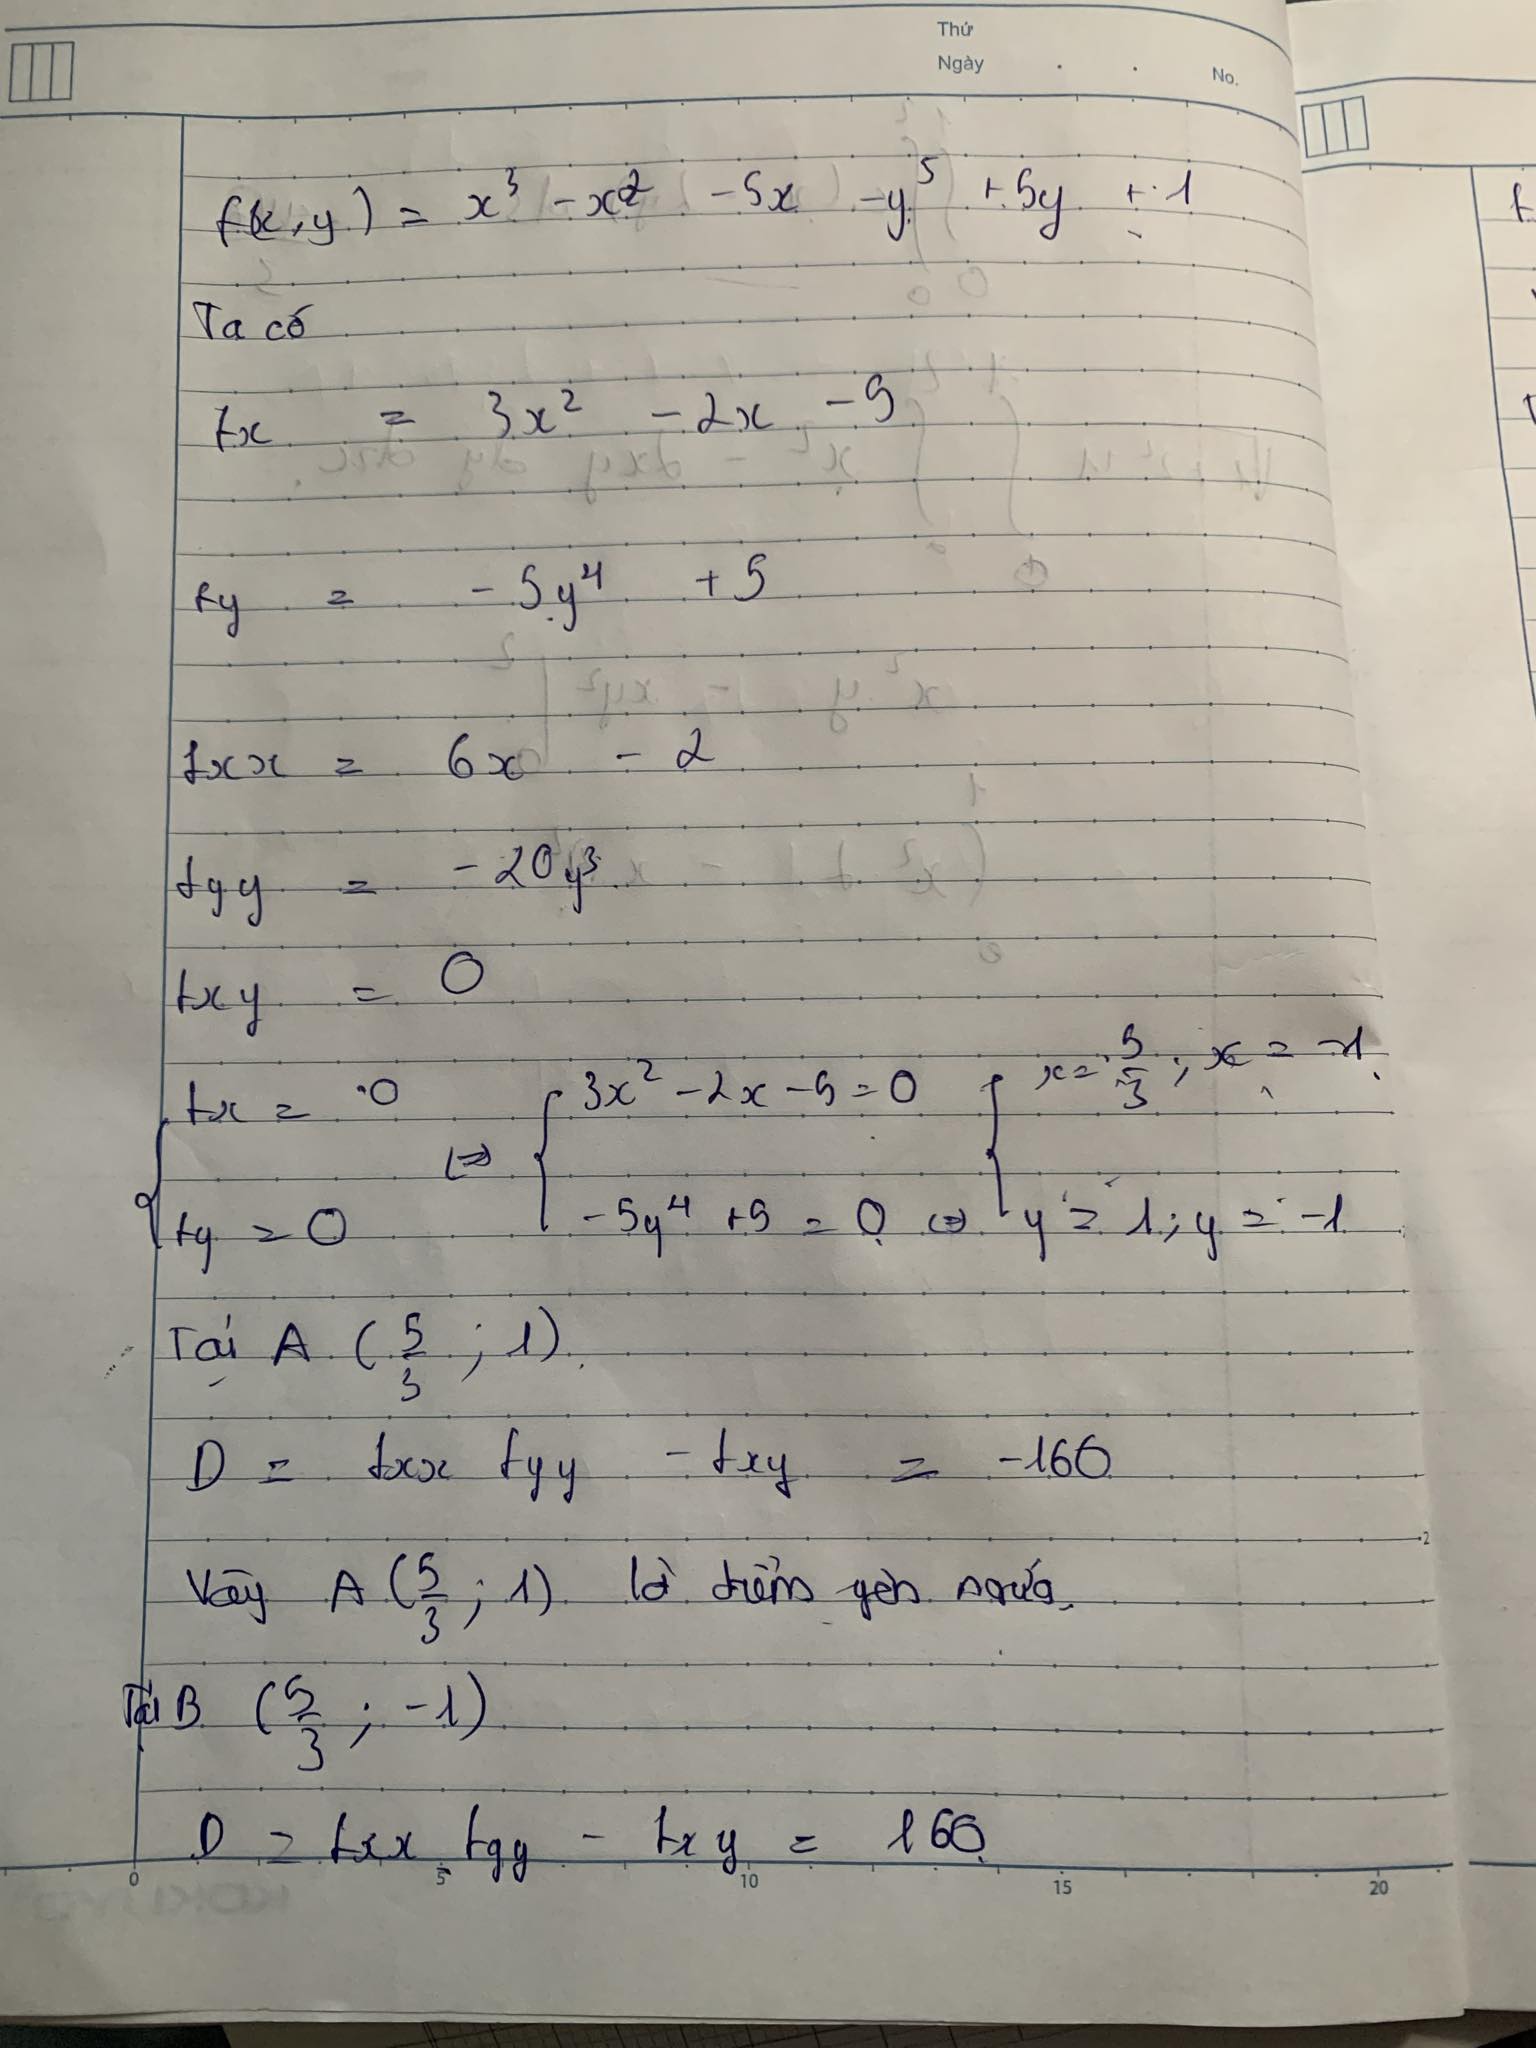 Thứ
Ngày . . No.
f(x, y) = x³ - x² - 5x - y⁵ + 5y + 1
Ta có
fx = 3x² - 2x - 5
fy = - 5y⁴ + 5
fxx = 6x - 2
fyy = - 20y³
fxy = 0
{ fx = 0 ⇔ { 3x² - 2x - 5 = 0 { x = 5/3 ; x = -1
fy = 0 - 5y⁴ + 5 = 0 ⇔ y = 1 ; y = -1
Tại A ( 5/3 ; 1 )
D = fxx fyy - fxy = -160
Vậy A ( 5/3 ; 1 ) là điểm yên ngựa.
Tại B ( 5/3 ; -1 )
D = fxx fyy - fxy = 160
0 5 10 15 20